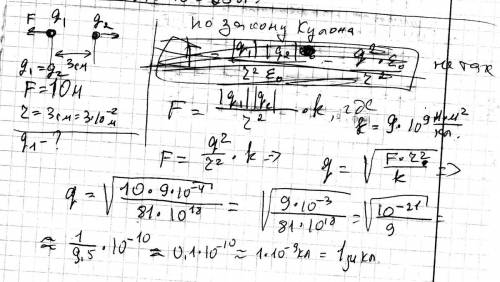 F q₁ q₂
3см
q₁ = q₂
F = 10 н
r = 3 см = 3·10⁻² м
q₁ - ?
по закону Кулона:
не так
F = |q₁||q₂| / r² · k, где
k = 9·10⁹ н·м² / кл.
F = q² / r² · k => q = √(F·r² / k) =>
q = √(10·9·10⁻⁴ / 81·10¹⁸) = √(9·10⁻³ / 81·10¹⁸) = √(10⁻²¹ / 9) =
≈ 1 / 9,5 · 10⁻¹⁰ ≈ 0,1·10⁻¹⁰ ≈ 1·10⁻⁹ кл = 1 мкл